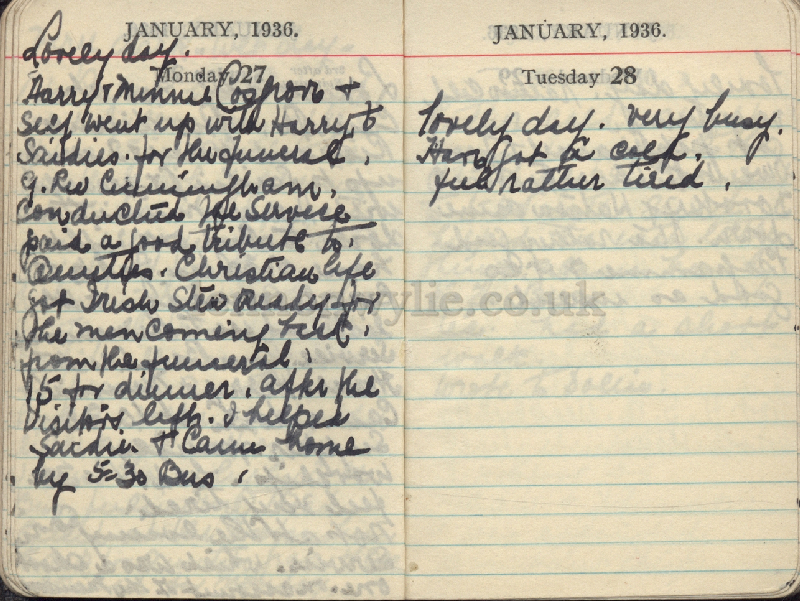 JANUARY, 1936.
Lovely day.
Monday 27
Harry & Minnie Cosgrove &
Self went up with Harry to
Saidies. for the funeral.
G. Rev Cunningham.
Conducted the Service
paid a good tribute to.
Christian life
got Irish Stew Ready for
the men Coming back.
from the funeral.
15 for dinner. after the
Visitors left. I helped
Saidie & Came home
by 5-30 Bus.
JANUARY, 1936.
Tuesday 28
lovely day. very busy.
Harry got a cold.
feel rather tired.